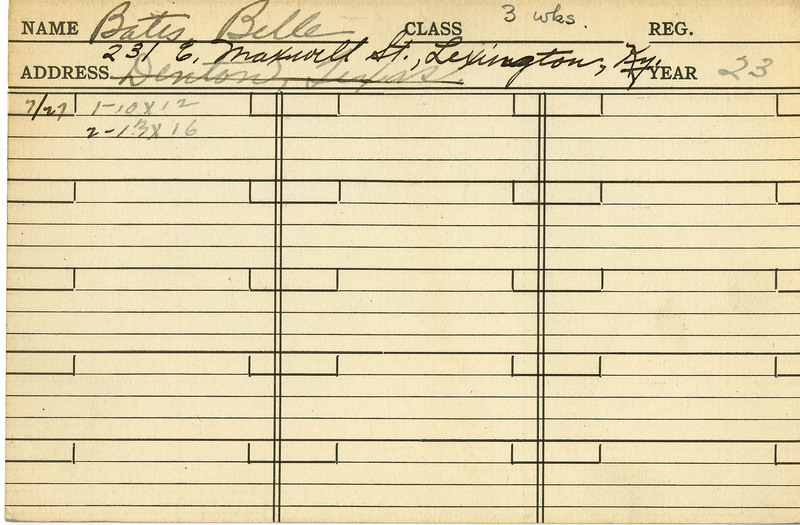 NAME Bates, Belle CLASS 3 wks. REG.
231 E. Maxwell St., Lexington, Ky.
ADDRESS Denton, Texas YEAR 23
7/27 1-10x12
2-13x16